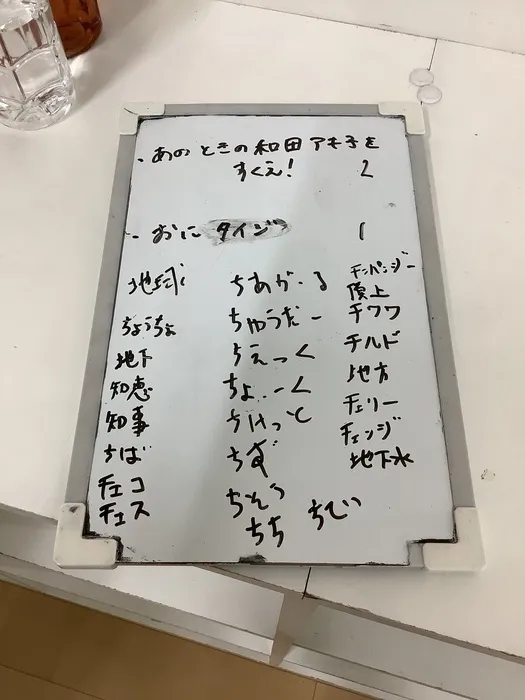 ・あのときの和田アキ子を
すくえ! 2
・おにタイジ 1
地球
ちょうちょ
地下
知恵
知事
ちば
チェコ
チェス
ちあがーる
ちゅうだー
ちえっく
ちょーく
ちけっと
ちず
ちそう
ちち ちてい
チンパンジー
頂上
チワワ
チルド
地方
チェリー
チェンジ
地下水